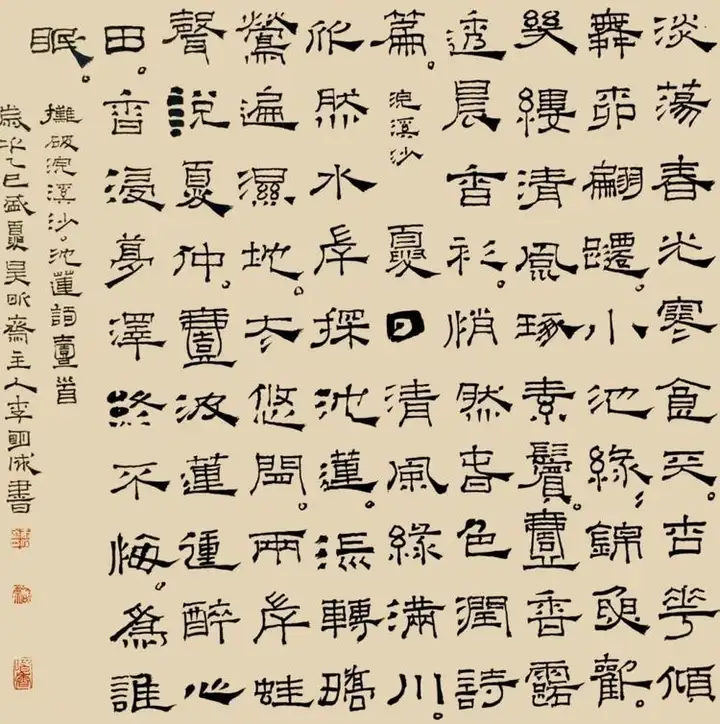 淡蕩春光寒食天。杏花傾
舞翩躚。小池綠錦魚歡。
幾縷清風琢素鬢。壹香露
透晨香衫。悄然春色潤詩
篇。浣溪沙 夏日清風綠滿川。
然水岸探池蓮。轉
鶯遍濕地。太悠閒。兩岸蛙
聲說夏仲。壹波蓮重醉心
田。香浸夢澤終不悔。為誰
眠。
攤破浣溪沙。池蓮詞壹首
歲次乙巳盛夏昊昕齋主人李明成書